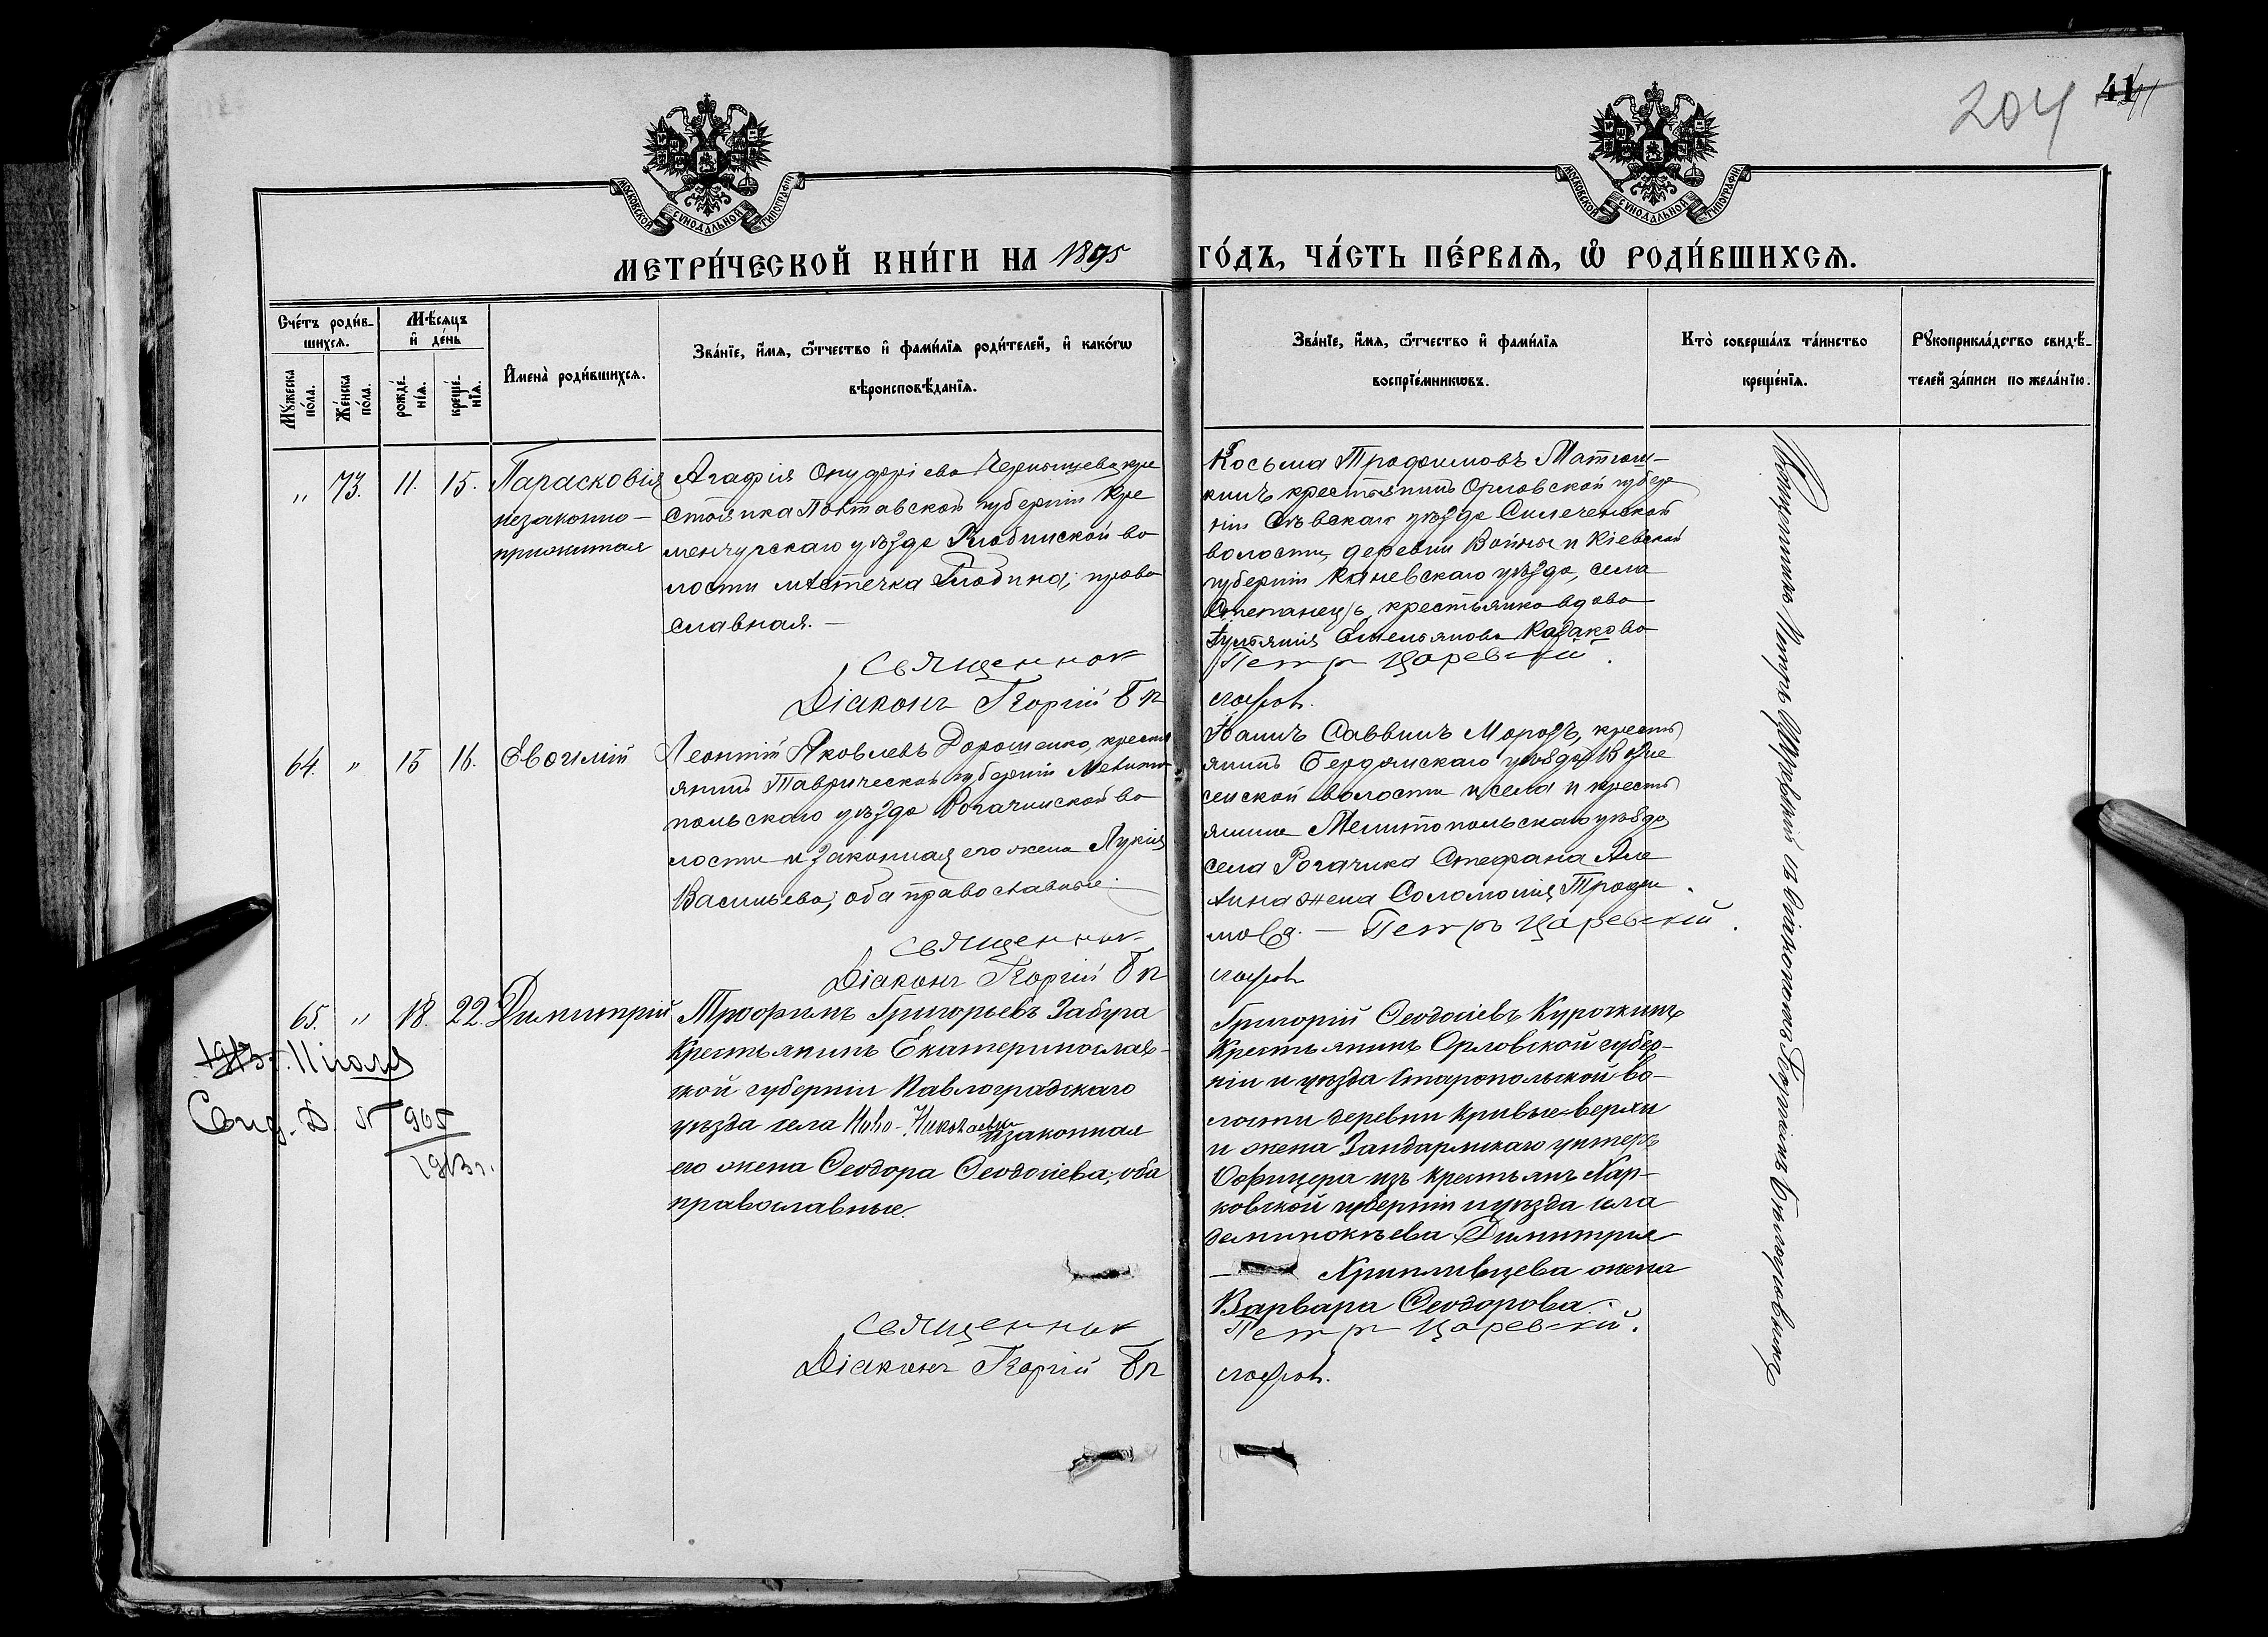 204 41
МОСКОВСКОЙ СУНОДАЛЬНОЙ ТИПОГРАФІИ
МОСКОВСКОЙ СУНОДАЛЬНОЙ ТИПОГРАФІИ
МЕТРИ́ЧЕСКОЙ КНИ́ГИ НА 1895 ГО́ДЪ, ЧА́СТЬ ПЕ́РВАѦ, Ѡ҆ РОДИ́ВШИХСѦ.
Сче́тъ роди́в-
шихсѧ.
Мꙋ́жеска
по́ла.
Же́нска
по́ла.
Мѣ́сѧцъ
и҆ де́нь
рожде́-
нїѧ.
креще́-
нїѧ.
И҆мена̀ роди́вшихсѧ.
Зва́нїе, и҆́мѧ, ѻ҆́тчество и҆ фами́лїѧ роди́телей, и҆ како́гѡ
вѣроисповѣ́данїѧ.
Зва́нїе, и҆́мѧ, ѻ҆́тчество и҆ фами́лїѧ
воспрїе́мникѡвъ.
Кто̀ соверша́лъ та́инство
креще́нїѧ.
Рꙋкоприкла́дство свидѣ́-
телей за́писи по жела́нїю.
" 73. 11. 15. Парасковія
незаконно-
прижитая
Агафія Онуфріева Чернышева кре
стьянка Полтавской губерніи Кре
менчугскаго уѣзда Глобинской во
лости мѣстечка Глобина; право
славная.
Священник
Діаконъ Георгій Бѣл
Косьма Трофимовъ Матюш-
кинъ крестьянинъ Орловской губер
ніи Сѣвскаго уѣзда
волости, деревни Войны и Кіевской
губерніи Каневскаго уѣзда, села
Степанецъ, крестьянка вдова
Іуліанія Емельянова Казакова
Петръ Царевскій.
64. " 15 16. Евѳимій
Леонтій Яковлевъ Дорошенко, кресть
янинъ Таврической губерніи Мелито
польскаго уѣзда Рогачикской во
лости и законная его жена Лукія
Васильева; оба православные.
Священник
Діаконъ Георгій Бѣл
Іоаннъ Саввинъ Морозъ, кресть
янинъ Бердянскаго уѣзда Возне
сенской волости и села и кресть
янина Мелитопольскаго уѣзда
села Рогачика Стефана Але
жена Соломонія Трофи
мова. — Петръ Царевскій.
65. " 18. 22. Димитрій
Трофимъ Григорьевъ Забуга
Крестьянинъ Екатеринослав-
ской губерніи Павлоградскаго
уѣзда села Ново-Николаевки и законная
его жена Ѳеодора Ѳеодосіева; оба
православные.
Священник
Діаконъ Георгій Бѣл
Григорій Ѳеодосіевъ Курочкинъ
Крестьянинъ Орловской губер-
ніи и уѣзда Старопольской во-
лости деревни Кривые-верхи
и жена Жандармскаго унтеръ
Офицера изъ крестьянъ Хар-
ковской губерніи и уѣзда села
Димитрія
— Хрипливцева жена
Варвара Ѳеодорова.
Петръ Царевскій.
Священникъ Петръ Царевскій съ діакономъ Георгіемъ
Іюля
Свид. Д. № 905
1913 г.